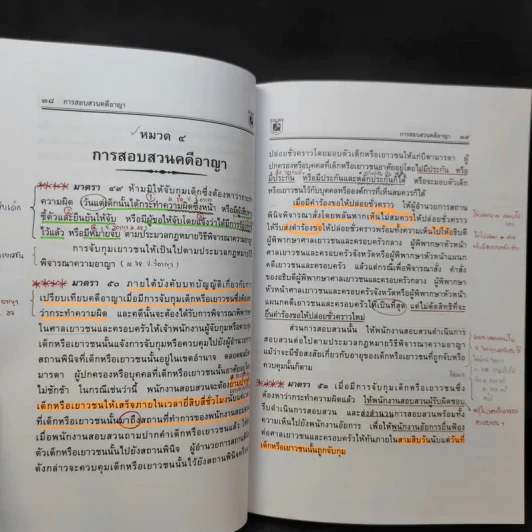 ๓๘ การสอบสวนคดีอาญา
หมวด ๔
การสอบสวนคดีอาญา
มาตรา ๔๙ ห้ามมิให้จับกุมเด็กซึ่งต้องหาว่ากระ
ความผิด เว้นแต่เด็กนั้นได้กระทำความผิดซึ่งหน้า หรือมีผู้เสีย
ชี้ตัวและยืนยันให้จับ หรือมีผู้ขอให้จับโดยแจ้งว่าได้มีการร้อง
ไว้แล้ว หรือมีหมายจับ ตามประมวลกฎหมายวิธีพิจารณาความอาญา
การจับกุมเยาวชนให้เป็นไปตามประมวลกฎหมาย
พิจารณาความอาญา
มาตรา ๕๐ ภายใต้บังคับบทบัญญัติเกี่ยวกับการ
เปรียบเทียบคดีอาญาเมื่อมีการจับกุมเด็กหรือเยาวชนซึ่งต้อง
ว่ากระทำความผิด และคดีนั้นจะต้องได้รับการพิจารณาพิพาก
ในศาลเยาวชนและครอบครัวให้เจ้าพนักงานผู้จับกุมหรือควบ
เด็กหรือเยาวชนนั้นแจ้งการจับกุมหรือควบคุมไปยังผู้อำนวยการ
สถานพินิจที่เด็กหรือเยาวชนนั้นอยู่ในเขตอำนาจ ตลอดจน
มารดา ผู้ปกครองหรือบุคคลที่เด็กหรือเยาวชนนั้นอาศัยอยู่
ไม่ชักช้า ในกรณีเช่นว่านี้ พนักงานสอบสวนจะต้องถามปาก
เด็กหรือเยาวชนให้เสร็จภายในเวลายี่สิบสี่ชั่วโมงนับแต่เวลา
ที่เด็กหรือเยาวชนนั้นมาถึงสถานที่ทำการของพนักงานสอบสวน
เมื่อพนักงานสอบสวนถามปากคำเด็กหรือเยาวชนแล้ว ให้
ตัวเด็กหรือเยาวชนนั้นไปยังสถานพินิจ ผู้อำนวยการสถานพินิจ
ดังกล่าวจะควบคุมเด็กหรือเยาวชนนั้นไว้ยังสถานพินิจหรือ
การสอบสวนคดีอาญา ๓๙
ปล่อยชั่วคราวโดยมอบตัวเด็กหรือเยาวชนให้แก่บิดามารดา ผู้
ปกครองหรือบุคคลที่เด็กหรือเยาวชนอาศัยอยู่โดยไม่มีประกัน หรือ
มีประกัน หรือมีประกันและหลักประกันก็ได้ หรือจะมอบตัวเด็ก
หรือเยาวชนไว้กับบุคคลหรือองค์การที่เห็นสมควรก็ได้
เมื่อมีคำร้องขอให้ปล่อยชั่วคราว ให้ผู้อำนวยการสถาน
พินิจพิจารณาสั่งโดยพลันหากเห็นไม่สมควรให้ปล่อยชั่วคราว
ให้รีบส่งคำร้องขอให้ปล่อยชั่วคราวพร้อมทั้งความเห็นไปให้อธิบดี
ผู้พิพากษาศาลเยาวชนและครอบครัวกลาง ผู้พิพากษาหัวหน้า
ศาลเยาวชนและครอบครัวจังหวัดหรือผู้พิพากษาหัวหน้าแผนกคดี
เยาวชนและครอบครัว แล้วแต่กรณีเพื่อพิจารณาสั่ง คำสั่ง
ของอธิบดีผู้พิพากษาศาลเยาวชนและครอบครัวกลาง ผู้พิพากษา
หัวหน้าศาลเยาวชนและครอบครัวจังหวัดหรือผู้พิพากษาหัวหน้า
แผนกคดีเยาวชนและครอบครัวให้เป็นที่สุด แต่ไม่ตัดสิทธิที่จะ
ยื่นคำร้องขอให้ปล่อยชั่วคราวใหม่
ส่วนการสอบสวนนั้น ให้พนักงานสอบสวนดำเนินการ
สอบสวนต่อไปตามประมวลกฎหมายวิธีพิจารณาความอาญา
แม้ว่าจะมีข้อสงสัยเกี่ยวกับอายุของเด็กหรือเยาวชนที่ถูกจับหรือ
ควบคุมนั้นก็ตาม
มาตรา ๕๑ เมื่อมีการจับกุมเด็กหรือเยาวชนซึ่ง
ต้องหาว่ากระทำความผิดแล้ว ให้พนักงานสอบสวนผู้รับผิดชอบ
รีบดำเนินการสอบสวน และส่งสำนวนการสอบสวนพร้อมทั้ง
ความเห็นไปยังพนักงานอัยการ เพื่อให้พนักงานอัยการยื่นฟ้อง
ต่อศาลเยาวชนและครอบครัวให้ทันภายในสามสิบวันนับแต่วันที่
เด็กหรือเยาวชนนั้นถูกจับกุม